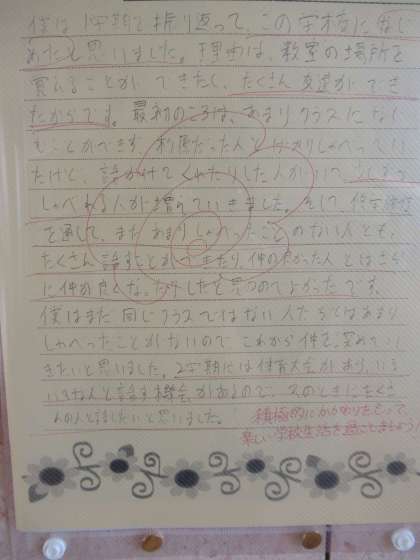 僕は1学期を振り返って、この学校になじ
めたと思いました。理由は、教室の場所を
覚えることができたし、たくさん友達ができ
たからです。最初のころは、あまりクラスになじ
むことができず、于原だった人とばかりしゃべってい
たけど、話かけてくれたりした人がいて、少しずつ
しゃべれる人が増えていきました。そして
を通して、まだあまりしゃべったことのない人とも、
たくさん話すことができたり、仲のよかった人とはさら
に仲が良くなったりしたと思うのでよかったです。
僕はまだ同じクラスではない人たちとはあまり
しゃべったことがないので、これから仲を深めてい
きたいと思いました。2学期には体育大会があり、いろ
いろな人と話す機会があるので、そのときにたくさ
んの人と話したいと思いました。
積極的にかかわりをもって、
楽しい学校生活を過ごしましょう!